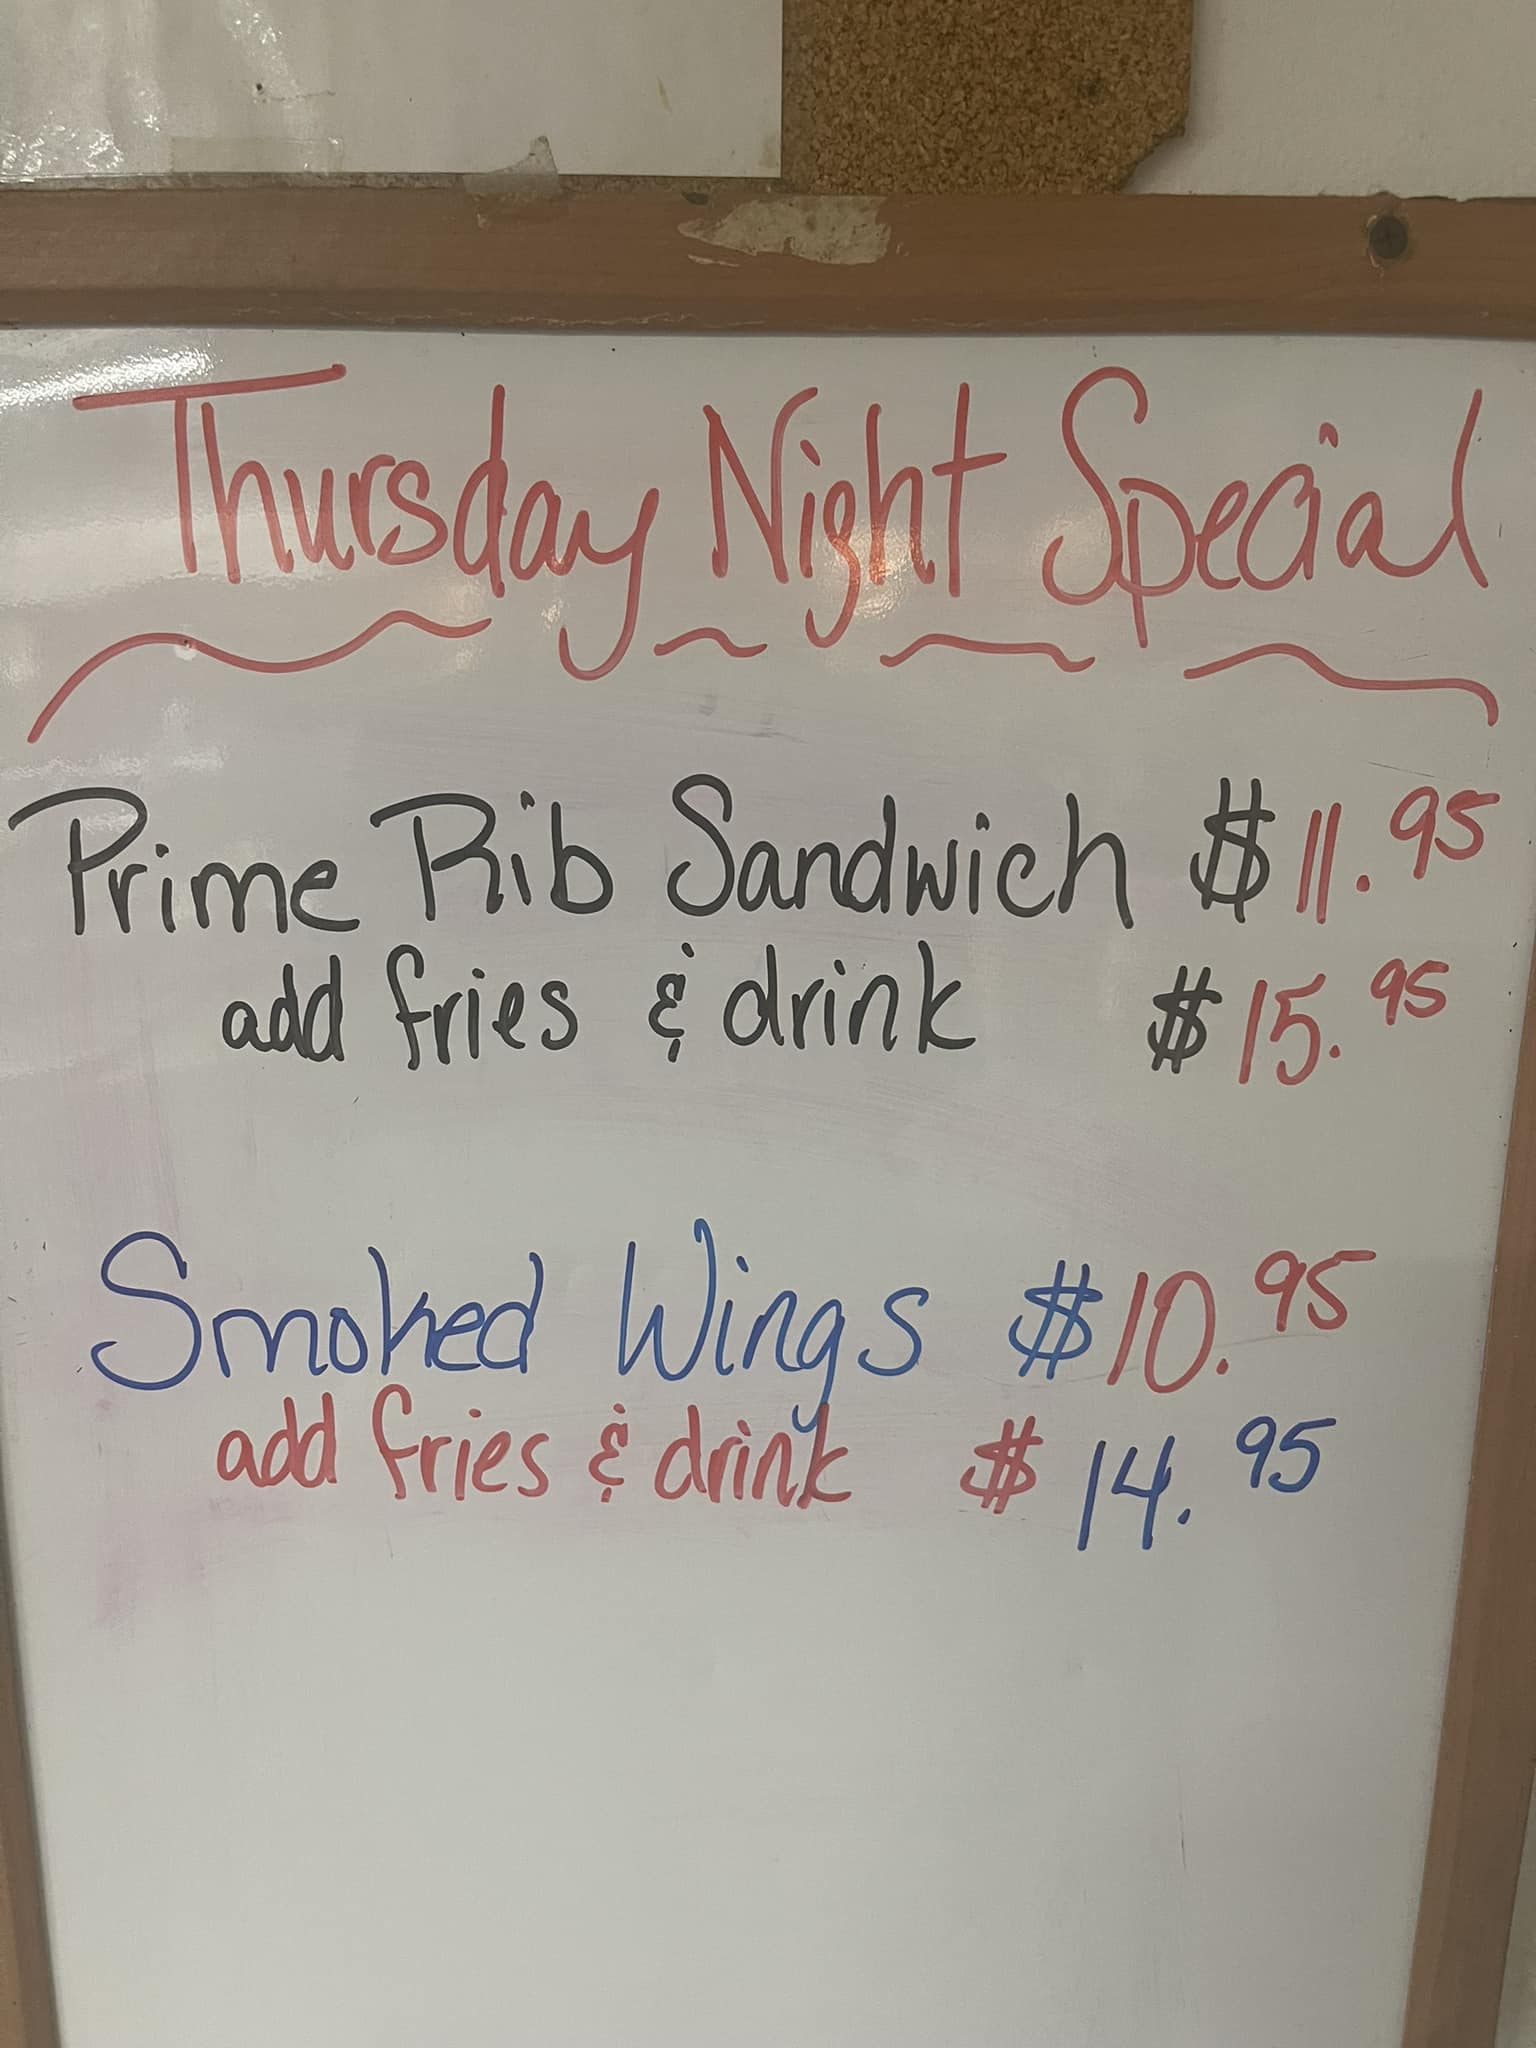 Thursday Night Special
Prime Rib Sandwich $11.95
add fries & drink $15.95
Smoked Wings $10.95
add fries & drink $14.95